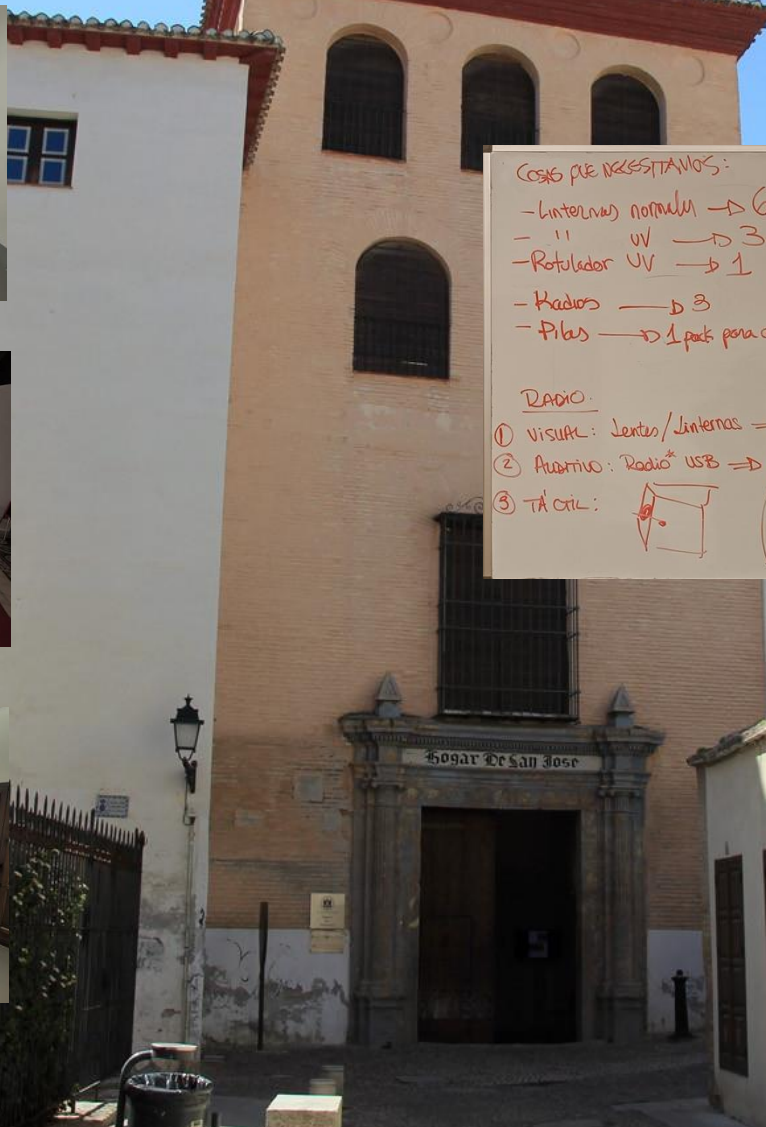 COSAS QUE NECESITAMOS:
- Linternas normales → 6
- " UV → 3
- Rotulador UV → 1
- Radios → 3
- Pilas → 1 pack para
RADIO.
① VISUAL: Lentes/Linternas =
② AUDITIVO: Radio* USB ⇒
③ TÁCTIL:
Hogar De San Jose